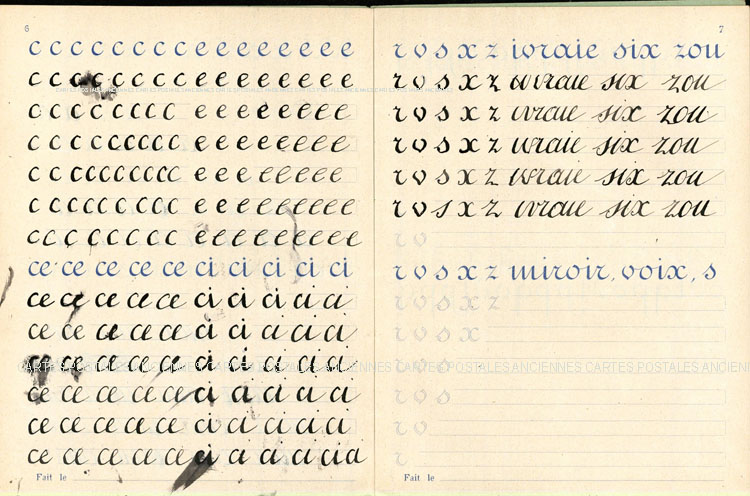 6
c c c c c c c c e e e e e e e e
c c c c c c c c e e e e e e e e
c c c c c c c c e e e e e e e e
c c c c c c c c c e e e e e e e e
c c c c c c c c c e e e e e e e e
c c c c c c c c e e e e e e e e
c c c c c c c c e e e e e e e e e
ce ce ce ce ce ci ci ci ci ci
ce ce ce ce ce ci ci ci ci ci
ce ce ce ce ce ci ci ci ci ci
ce ce ce ce ce ci ci ci ci ci
ce ce ce ce ce ci ci ci ci ci
ce ce ce ce ce ci ci ci ci ci
ce ce ce ce ce ci ci ci ci cia
Fait le
7
r v s x z ivraie six zou
r v s x z ivraie six zou
r v s x z ivraie six zou
r v s x z ivraie six zou
r v s x z ivraie six zou
r v s x z ivraie six zou
r v
r v s x z miroir, voix, s
r v s x z
r v s x
r v s
r v s
r v
r
Fait le
CARTES POSTALES ANCIENNES CARTES POSTALES ANCIENNES